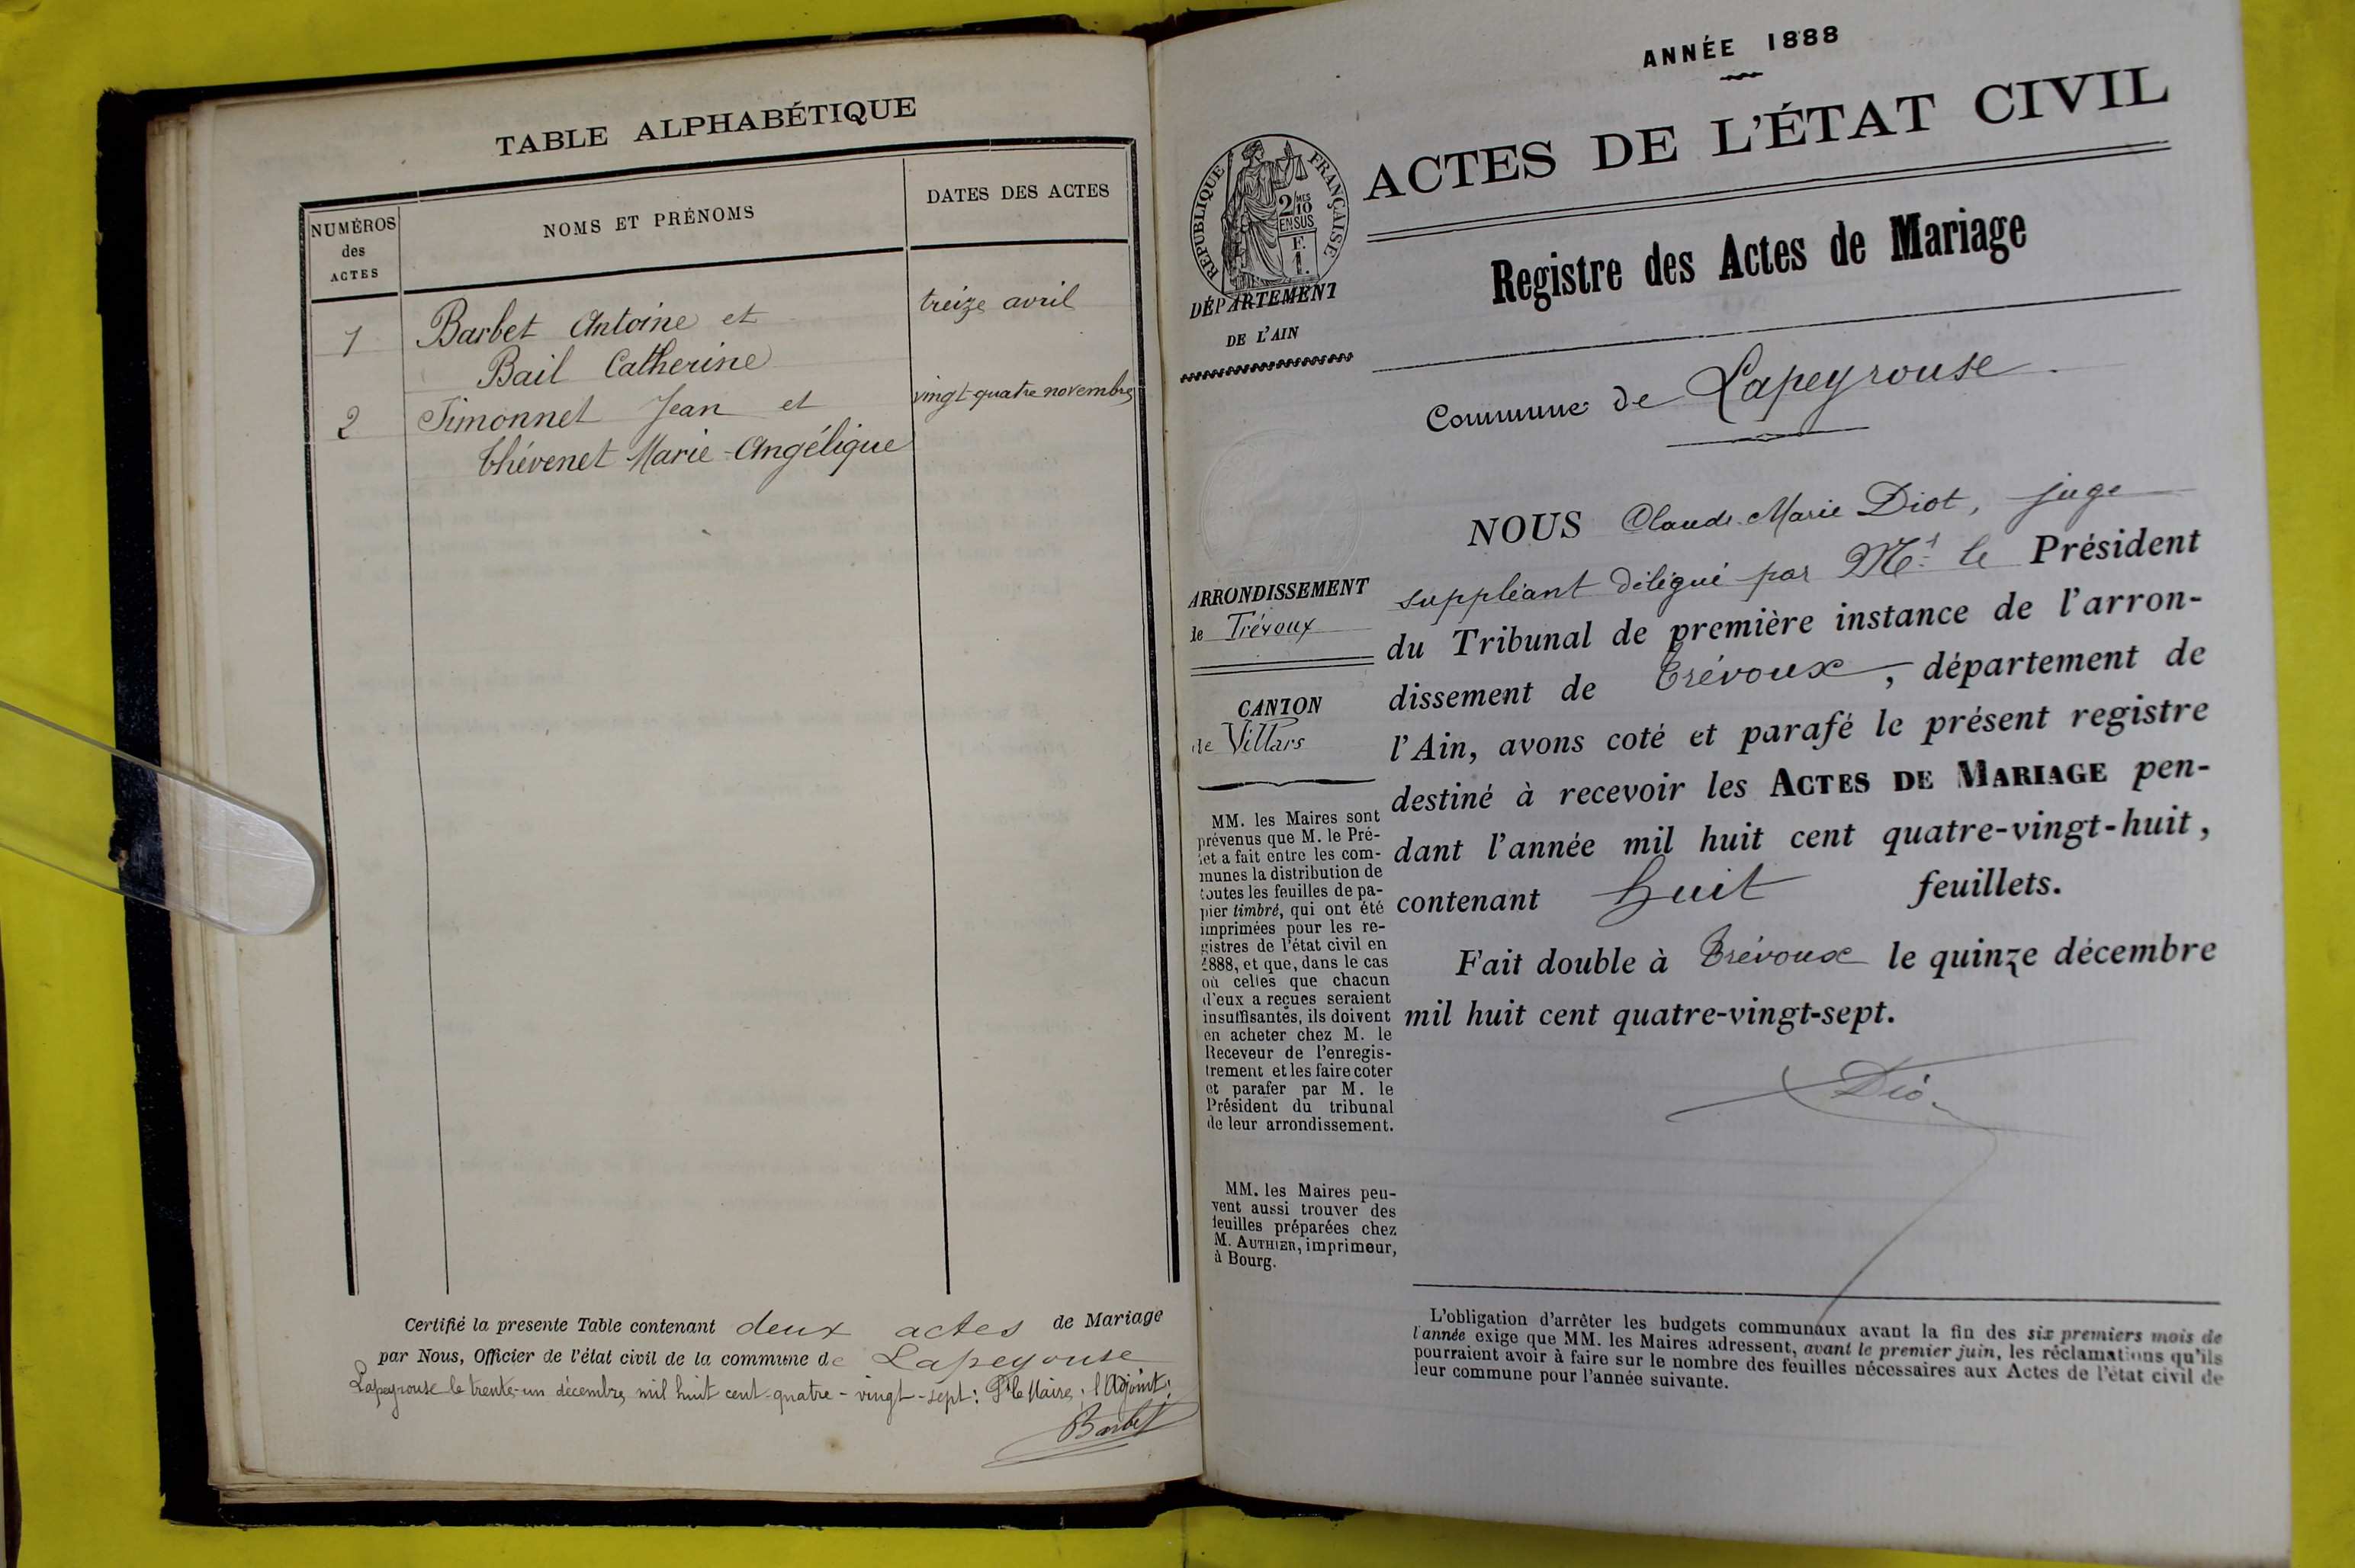 TABLE ALPHABÉTIQUE
NUMÉROS
des
ACTES
NOMS ET PRÉNOMS
DATES DES ACTES
1
Barbet Antoine et
treize avril
Bail Catherine
2
Simonnet Jean et
vingt-quatre novembre
Thévenet Marie-Angélique
Certifié la presente Table contenant deux actes de Mariage
par Nous, Officier de l'état civil de la commune de Lapeyouse
Lapeyrouse le trente-un décembre mil huit cent-quatre-vingt-sept: Pr le Maire, l'Adjoint;
Barbet
ANNÉE 1888
ACTES DE L'ÉTAT CIVIL
RÉPUBLIQUE FRANÇAISE
2/10 MES
EN SUS
F.
1.
DÉPARTEMENT
DE L'AIN
Registre des Actes de Mariage
Commune de Lapeyrouse.
ARRONDISSEMENT
de Trévoux
CANTON
de Villars
MM. les Maires sont
prévenus que M. le Pré-
fet a fait entre les com-
munes la distribution de
toutes les feuilles de pa-
pier timbré, qui ont été
imprimées pour les re-
gistres de l'état civil en
1888, et que, dans le cas
où celles que chacun
d'eux a reçues seraient
insuffisantes, ils doivent
en acheter chez M. le
Receveur de l'enregis-
trement et les faire coter
et parafer par M. le
Président du tribunal
de leur arrondissement.
MM. les Maires peu-
vent aussi trouver des
feuilles préparées chez
M. AUTHIER, imprimeur,
à Bourg.
NOUS Claude-Marie Diot, juge
suppléant délégué par Mr. le Président
du Tribunal de première instance de l'arron-
dissement de Trévoux, département de
l'Ain, avons coté et parafé le présent registre
destiné à recevoir les ACTES DE MARIAGE pen-
dant l'année mil huit cent quatre-vingt-huit,
contenant huit feuillets.
Fait double à Trévoux le quinze décembre
mil huit cent quatre-vingt-sept.
Dio
L'obligation d'arrêter les budgets communaux avant la fin des six premiers mois de
l'année exige que MM. les Maires adressent, avant le premier juin, les réclamations qu'ils
pourraient avoir à faire sur le nombre des feuilles nécessaires aux Actes de l'état civil de
leur commune pour l'année suivante.